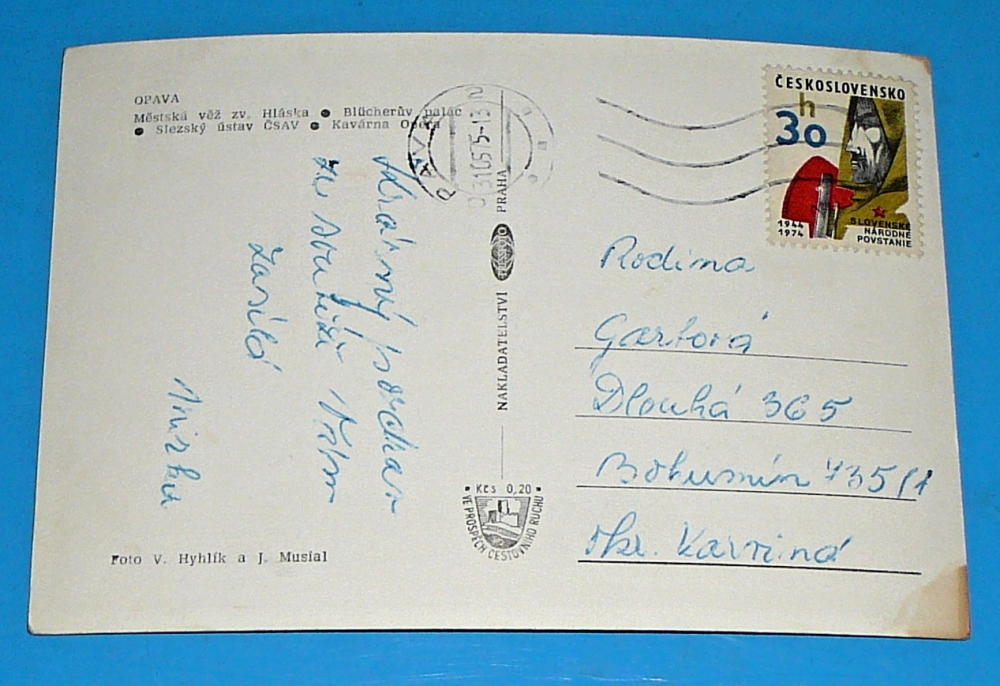 OPAVA
Městská věž zv. Hláska ● Blücherův palác
● Slezský ústav ČSAV ● Kavárna Opera
Krásný pozdrav
ze souteže Vám
zasílá
Foto V. Hyhlík a J. Musial
OPAVA
31.05.75-13
NAKLADATELSTVÍ PRESSFOTO PRAHA
• Kčs 0,20 •
VE PROSPĚCH CESTOVNÍHO RUCHU
ČESKOSLOVENSKO
h
30
1944
1974
SLOVENSKÉ
NÁRODNÉ
POVSTANIE
Rodina
Gartová
Dlouhá 365
Bohumín 735/1
okr. Karviná